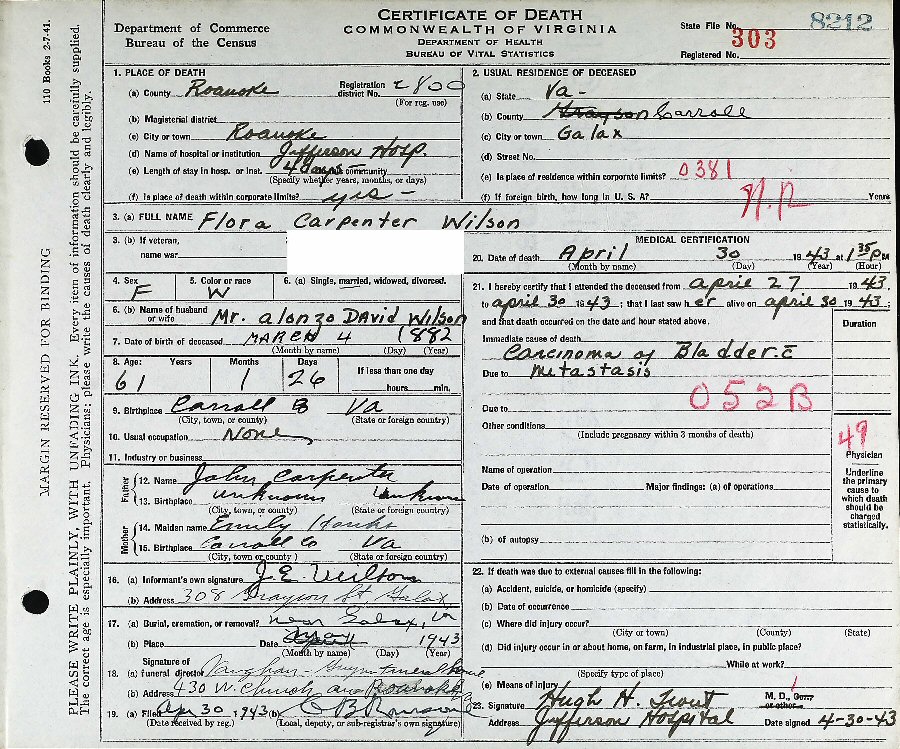 CERTIFICATE OF DEATH
COMMONWEALTH OF VIRGINIA
DEPARTMENT OF HEALTH
BUREAU OF VITAL STATISTICS
Department of Commerce
Bureau of the Census
State File No. 8212
303
Registered No.
110 Books 2-7-41.
MARGIN RESERVED FOR BINDING
PLEASE WRITE PLAINLY, WITH UNFADING INK. Every item of information should be carefully supplied.
The correct age is especially important. Physicians: please write the causes of death clearly and legibly.
1. PLACE OF DEATH
(a) County Roanoke Registration district No. 2800
(For reg. use)
(b) Magisterial district
(c) City or town Roanoke
(d) Name of hospital or institution Jefferson Hosp.
(e) Length of stay in hosp. or inst. 4 days community
(Specify whether years, months, or days)
(f) Is place of death within corporate limits? yes -
2. USUAL RESIDENCE OF DECEASED
(a) State Va -
(b) County Grayson Carroll
(c) City or town Galax
(d) Street No.
(e) Is place of residence within corporate limits? 0381
(f) If foreign birth, how long in U. S. A? N.R Years
3. (a) FULL NAME Flora Carpenter Wilson
3. (b) If veteran,
name war
4. Sex F
5. Color or race W
6. (a) Single, married, widowed, divorced.
6. (b) Name of husband or wife Mr. Alonzo David Wilson
7. Date of birth of deceased MARCH 4 1882
(Month by name) (Day) (Year)
8. Age: Years Months Days If less than one day
61 1 26 hours min.
9. Birthplace Carroll Va
(City, town, or county) (State or foreign country)
10. Usual occupation None
11. Industry or business
Father
12. Name John Carpenter
13. Birthplace unknown unknown
(City, town, or county) (State or foreign country)
Mother
14. Maiden name Emily Hanks
15. Birthplace Carroll Co Va
(City, town or county) (State or foreign country)
16. (a) Informant's own signature J.E. Wilson
(b) Address 308 Grayson St, Galax
17. (a) Burial, cremation, or removal? near Galax, Va
(b) Place Date 1943
(Month by name) (Day) (Year)
18. Signature of
(a) funeral director Vaughan-Guynn Funeral Home
(b) Address 430 W. Church ave Roanoke
19. (a) Filed Apr 30 1943 (b)
(Date received by reg.) (Local, deputy, or sub-registrar's own signature)
MEDICAL CERTIFICATION
20. Date of death April 30 1943 at 1:35 P M
(Month by name) (Day) (Year) (Hour)
21. I hereby certify that I attended the deceased from april 27 1943
to april 30 1943; that I last saw her alive on april 30 1943;
and that death occurred on the date and hour stated above.
Duration
Immediate cause of death
Carcinoma of Bladder c̄
Due to metastasis
052B
Due to
Other conditions
(Include pregnancy within 3 months of death)
49
Physician
Underline
the primary
cause to
which death
should be
charged
statistically.
Name of operation
Date of operation Major findings: (a) of operations
(b) of autopsy
22. If death was due to external causes fill in the following:
(a) Accident, suicide, or homicide (specify)
(b) Date of occurrence
(c) Where did injury occur?
(City or town) (County) (State)
(d) Did injury occur in or about home, on farm, in industrial place, in public place?
While at work?
(Specify type of place)
(e) Means of injury
23. Signature Hugh H. Trout M. D., Cor.
or other
Address Jefferson Hospital Date signed 4-30-43